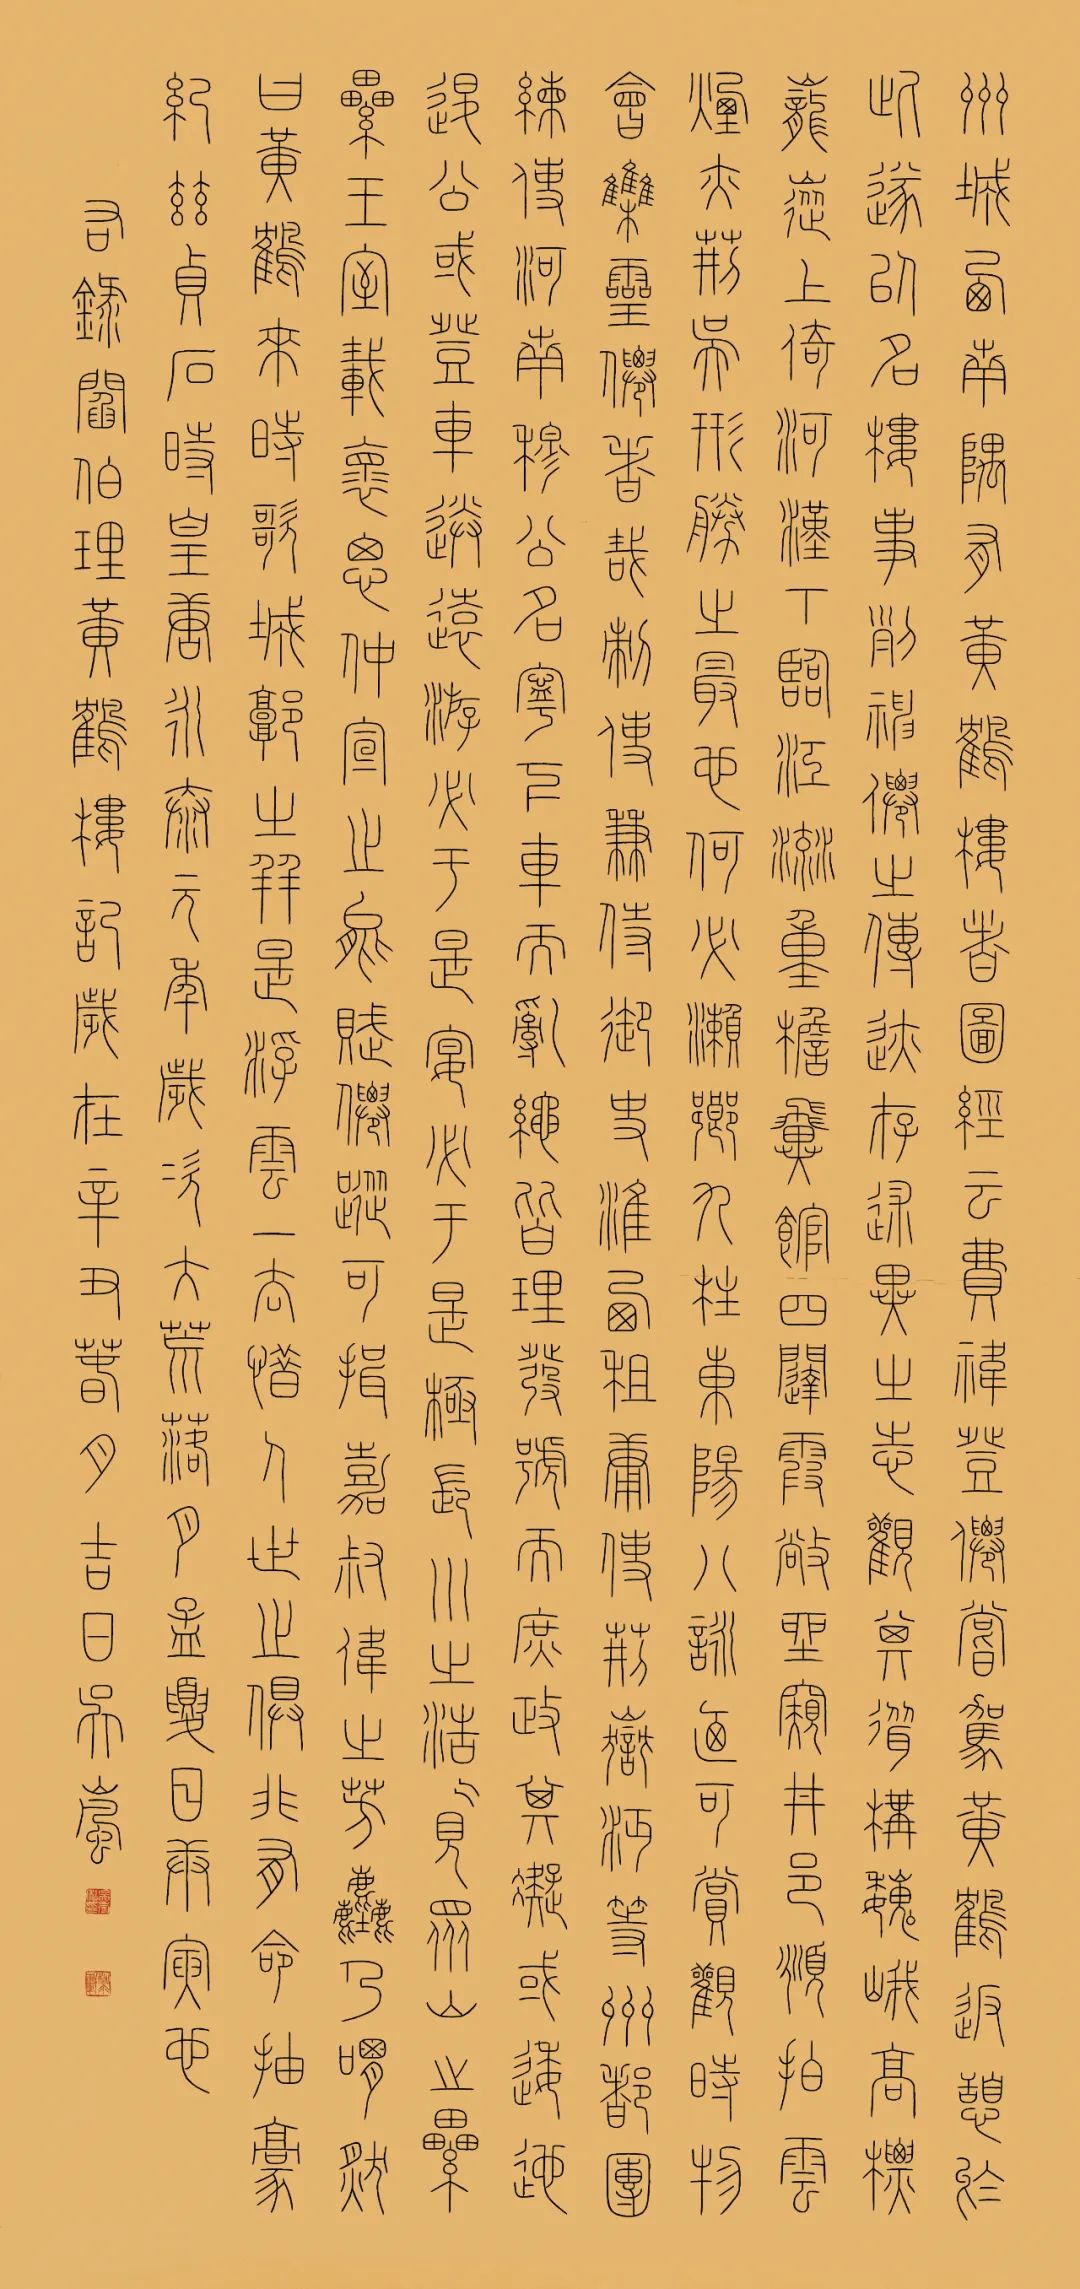 州城西南隅有黃鶴樓者圖經云費禕登僊嘗駕黃鶴返憩於
此遂以名樓事列神僊之傳迹存述異之志觀其聳構巍峨高標
巃嵸上倚河漢下臨江流重檐翼館四闥霞敞坐窺井邑俯拍雲
煙亦荊吳形勝之最也何必瀨鄉九柱東陽八詠迺可賞觀時物
會集靈僊者哉刺使兼侍御史淮西租庸使荊嶽沔等州都團
練使河南穆公名寧下車而亂繩皆理發號而庶政其凝或逶迤
退公或登車送遠游必于是宴必于是極長川之浩〻見眾山之纍
纍王室載懷思仲宣之能賦僊蹤可指嘉叔偉之芳塵乃喟然
曰黃鶴來時歌城郭之並是浮雲一去惜人世之俱非有命抽毫
紀茲貞石時皇唐永泰元年歲次大荒落月孟夏日庚寅也
右錄閻伯理黃鶴樓記歲在辛丑春月吉日吳嵐